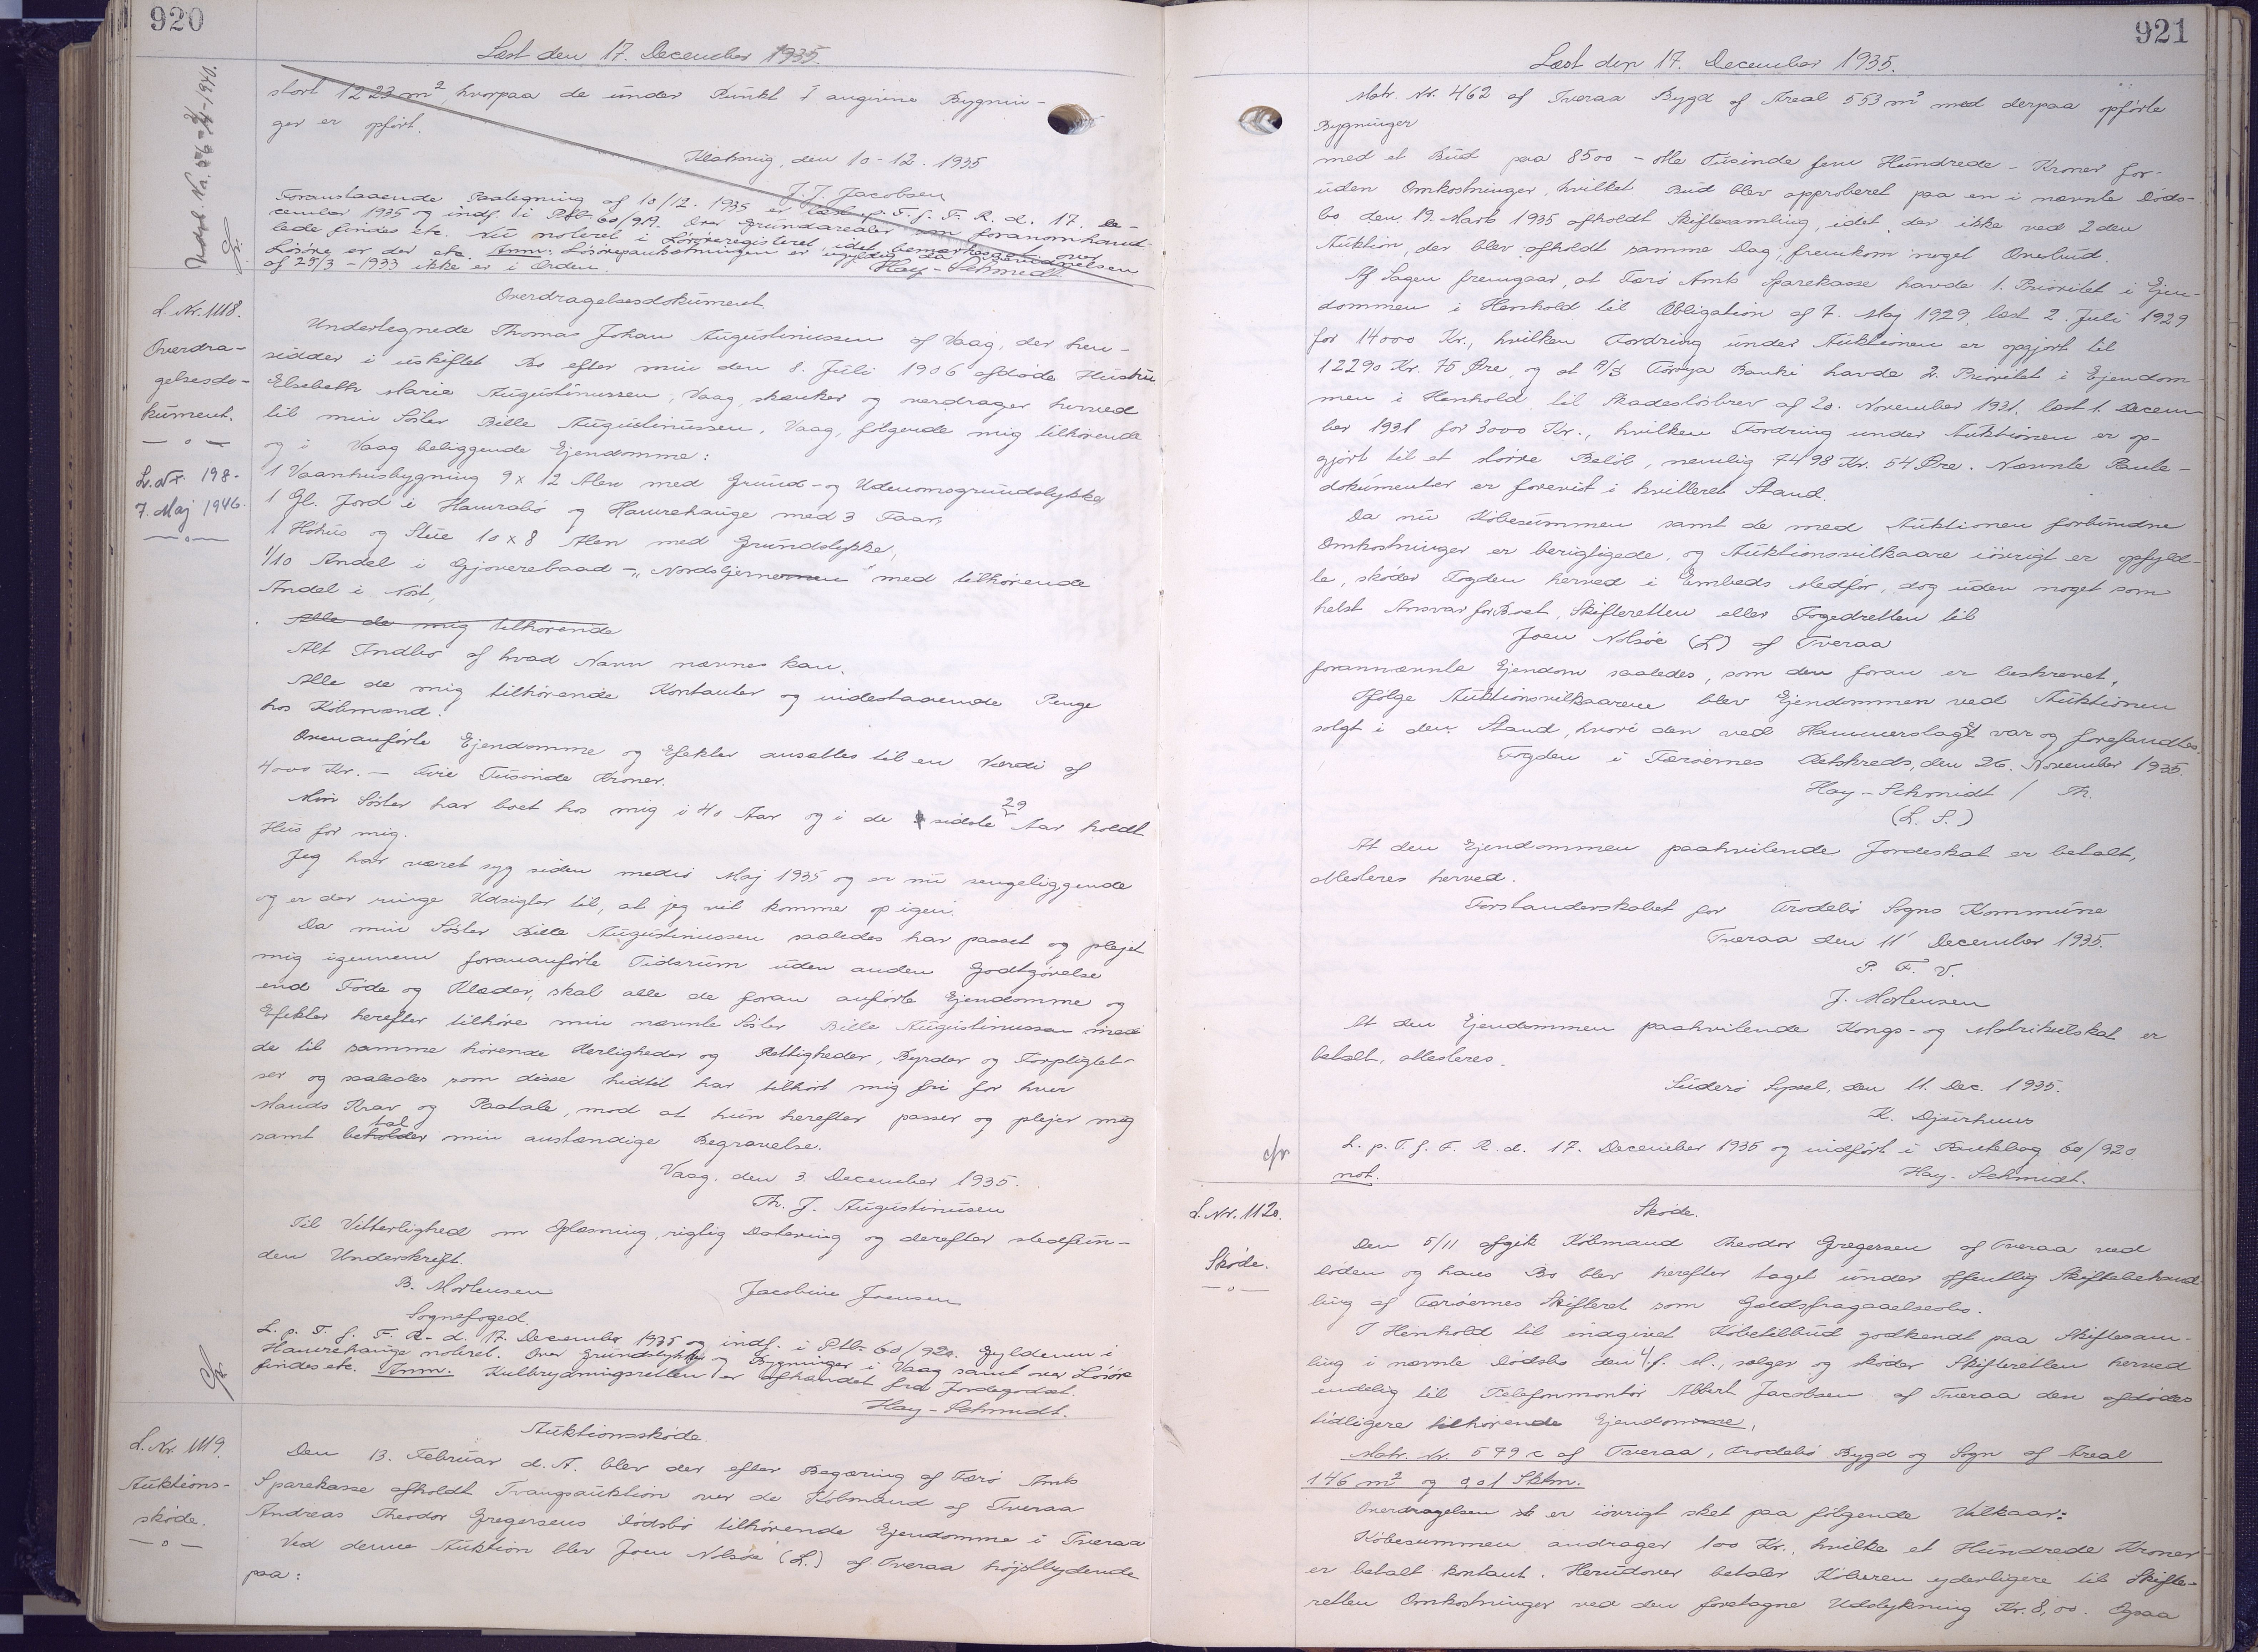 920
Læst den 17. December 1935.
stort 1223 m², hvorpaa de under Punkt I angivne Bygnin-
ger er opført.
Klaksvig, den 10-12. 1935
J. J. Jacobsen
Foranstaaende Paategning af 10/12. 1935 er læst p. T. f. F. R. d. 17. De-
cember 1935 og indf. i Ptb. 60/919. Over Grundarealer som foranomhand-
lede findes etc. Nu noteret i Løsøreregisteret, idet bemærkes at over
Løsøre er der etc. Anm: Løsørepantsætningen er ugyldig, da
af 25/3-1933 ikke er i Orden.
Hay-Schmidt
L. Nr. 1118.
Overdra-
gelsesdo-
kument.
L. Nr. 198-
7. Maj 1946.
Overdragelsesdokument
Undertegnede Thomas Johan Augustinussen af Vaag, der hen-
sidder i uskiftet Bo efter min den 8. Juli 1906 afdøde Hustru
Elsebeth Marie Augustinussen, Vaag, skænker og overdrager herved
til min Søster Bille Augustinussen, Vaag, følgende mig tilhørende
og i Vaag beliggende Ejendomme:
1 Vaanhusbygning 9 x 12 Alen med Grund- og Udenomsgrundstykke,
1 Gl. Jord i Hamrabø og Hamrehauge med 3 Faar,
1 Hohus og Stue 10 x 8 Alen med Grundstykke,
1/10 Andel i Gjoverebaad - "Nordstjernen" med tilhørende
Andel i Nøst,
Alle de mig tilhørende
Alt Indbo af hvad Navn nævnes kan.
Alle de mig tilhørende Kontanter og indestaaende Penge
hos Købmænd.
Ovenanførte Ejendomme og Efekter ansættes til en Værdi af
4000 Kr. - Fire Tusinde Kroner.
Min Søster har boet hos mig i 40 Aar og i de sidste 29 Aar holdt
Hus for mig.
Jeg har været syg siden medio Maj 1935 og er nu sengeliggende
og er der ringe Udsigter til, at jeg vil komme op igen.
Da min Søster Bille Augustinussen saaledes har passet og plejet
mig igennem forananførte Tidsrum uden anden Godtgørelse
end Føde og Klæder, skal alle de foran anførte Ejendomme og
Efekter herefter tilhøre min nævnte Søster Bille Augustinussen med
de til samme hørende Herligheder og Rettigheder, Byrder og Forpligtel-
ser og saaledes som disse hidtil har tilhørt mig fri for hver
Mands Krav og Paatale, mod at hun herefter passer og plejer mig
samt betaler min anstændige Begravelse.
Vaag, den 3. December 1935.
Th. J. Augustinusen
Til Vitterlighed om Oplæsning, rigtig Datering og derefter stedfun-
den Underskrift.
B. Mortensen
Jacobine Joensen
Sognefoged.
L. p. T. f. F. R. d. 17. December 1935 og indf. i Ptb. 60/920. Gyldenen i
Hamrehauge noteret. Over Grundstykke og Bygninger i Vaag samt over Løsøre
findes etc. Anm. Kulbrydningsretten er afhændet fra Jordegodset.
Hay-Schmidt.
L. Nr. 1119.
Auktions-
skøde.
Auktionsskøde.
Den 13. Februar d. A. blev der efter Begæring af Færø Amts
Sparekasse afholdt Tvangsauktion over de Købmand af Tveraa
Andreas Theodor Gregersens Dødsbo tilhørende Ejendomme i Tveraa
Ved denne Auktion blev Joen Nolsøe (L.) af Tveraa højstbydende
paa:
921
Læst den 17. December 1935.
Matr. Nr. 462 af Tveraa Bygd af Areal 553 m² med derpaa opførte
Bygninger
med et Bud paa 8500 - Otte Tusinde fem Hundrede - Kroner for-
uden Omkostninger, hvilket Bud blev approberet paa en i nævnte Døds-
bo den 19. Marts 1935 afholdt Skiftesamling, idet der ikke ved 2den
Auktion, der blev afholdt samme Dag, fremkom noget Overbud.
Af Sagen fremgaar, at Færø Amts Sparekasse havde 1. Prioritet i Ejen-
dommen i Henhold til Obligation af 7. Maj 1929, læst 2. Juli 1929
for 14000 Kr., hvilken Fordring under Auktionen er opgjort til
12290 Kr. 75 Øre, og at A/S Føroya Banki havde 2. Prioritet i Ejendom-
men i Henhold til Skadesløsbrev af 20. November 1931, læst 1. Decem-
ber 1931 for 3000 Kr., hvilken Fordring under Auktionen er op-
gjort til et større Beløb, nemlig 7498 Kr. 54 Øre. Nævnte Pante-
dokumenter er forevist i kvitteret Stand.
Da nu Købesummen samt de med Auktionen forbundne
Omkostninger er berigtigede, og Auktionsvilkaare iøvrigt er opfyld-
te, skøder Fogden herved i Embeds Medfør, dog uden noget som
helst Ansvar for Boet, Skifteretten eller Fogedretten til
Joen Nolsøe (L) af Tveraa
forannævnte Ejendom saaledes, som den foran er beskrevet.
Ifølge Auktionsvilkaarene blev Ejendommen ved Auktionen
solgt i den Stand, hvori den ved Hammerslaget var og forefandtes.
Fogden i Færøernes Retskreds, den 26. November 1935.
Hay-Schmidt / Th.
(L. S.)
At den Ejendommen paahvilende Jordeskat er betalt,
attesteres herved.
Forstanderskabet for Frodebø Sogns Kommune
Tveraa den 11' December 1935.
P. F. V.
J. Mortensen
At den Ejendommen paahvilende Kongs- og Matrikulskat er
betalt, attesteres.
Suderø Syssel, den 11. Dec. 1935.
K. Djurhuus
L. p. T. f. F. R. d. 17. December 1935 og indført i Pantebog 60/920
not.
Hay-Schmidt.
L. Nr. 1120.
Skøde.
Skøde.
Den 5/11 afgik Købmand Theodor Gregersen af Tveraa ved
Døden og hans Bo blev herefter taget under offentlig Skiftebehand-
ling af Færøernes Skifteret som Gældsfragaaelsesbo.
I Henhold til indgivet Købetilbud godkendt paa Skiftesam-
ling i nævnte Dødsbo den f. M., sælger og skøder Skifteretten herved
endelig til Telefonmontør Albert Jacobsen af Tveraa den afdødes
tidligere tilhørende Ejendomme,
Matr. Nr. 579 c af Tveraa, Frodebø Bygd og Sogn af Areal
146 m² og 0,01 Sktm.
Overdragelsen er iøvrigt sket paa følgende Vilkaar:
Købesummen andrager 100 Kr., hvilke et Hundrede Kroner
er betalt kontant. Herudover betaler Køberen yderligere til Skifte-
retten Omkostninger ved den foretagne Udstykning Kr. 8,00. Ogsaa